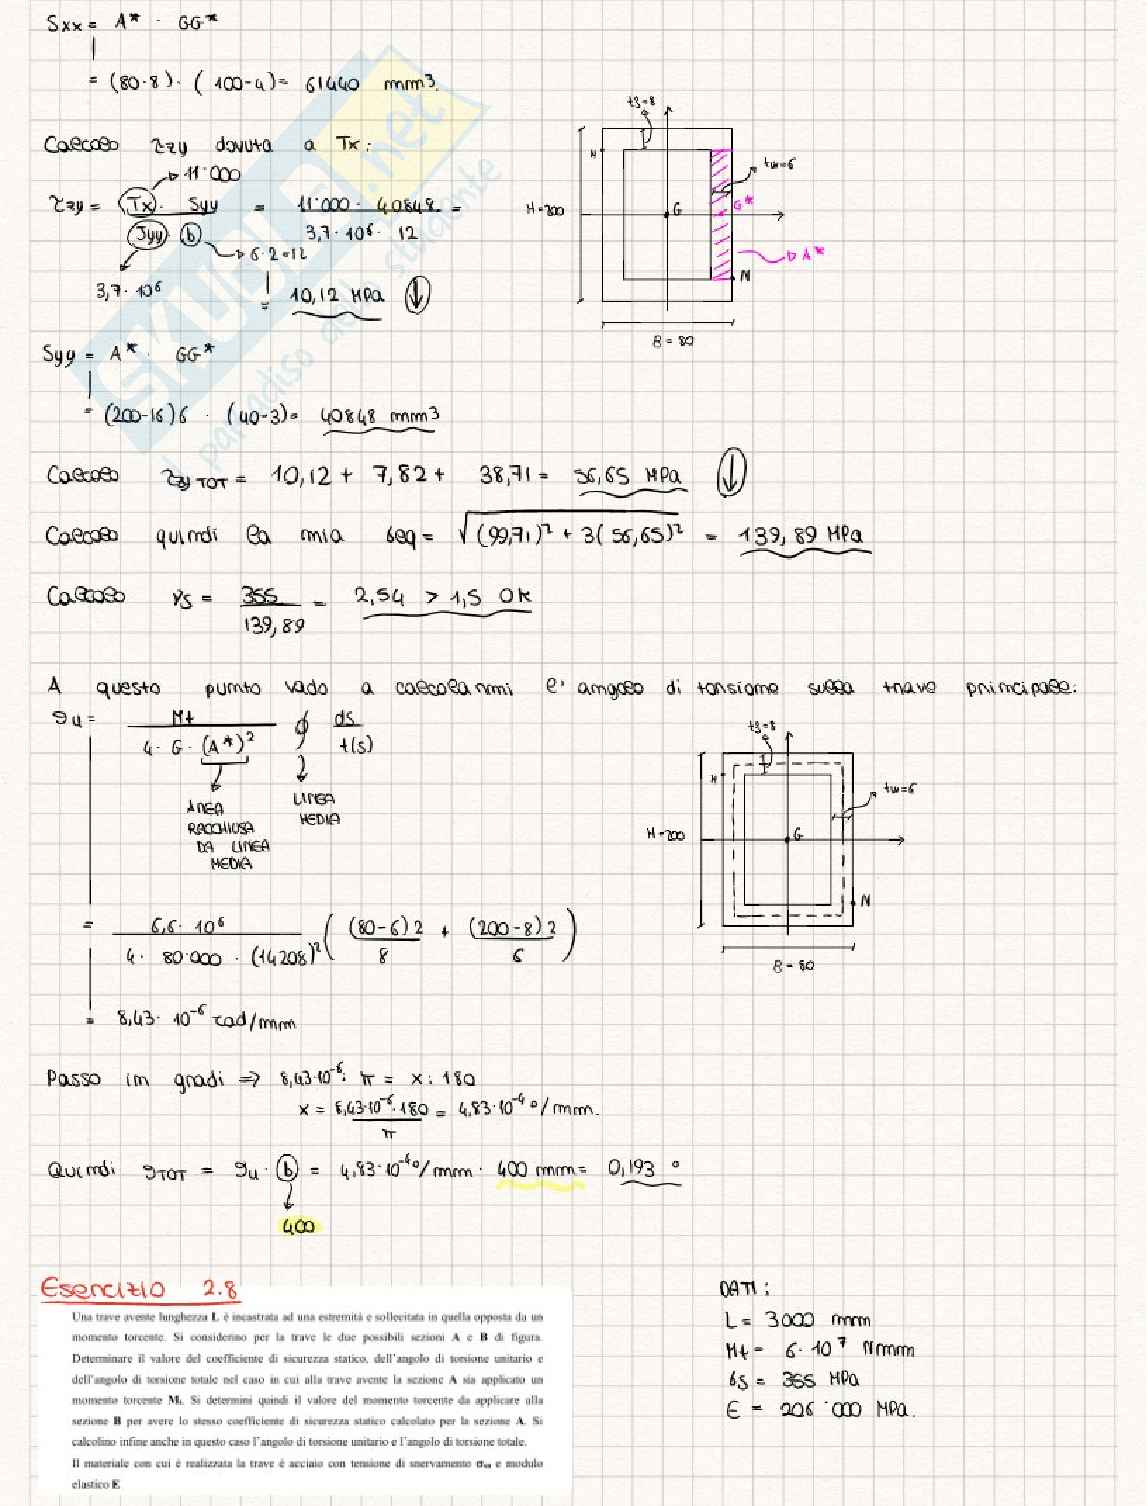 Sxx = A* · GG*
= (80·8)·(100-4)= 61440 mm3.
Calcolo τzy dovuta a Tx:
→ 11'000
τzy = Tx · Syy / Jyy b = 11'000 · 40848 / 3,7·10⁶ · 12 =
→ 6·2=12
3,7·10⁶
= 10,12 MPa ↓
t3=8
H
tw=6
H=200
G
G*
→ A*
M
B = 80
Syy = A* · GG*
= (200-16)6 · (40-3)= 40848 mm3
Calcolo τzy TOT = 10,12 + 7,82 + 38,71 = 56,65 MPa ↓
Calcolo quindi la mia σeq = √(99,71)² + 3(56,65)² = 139,89 MPa
Calcolo γs = 355 / 139,89 = 2,54 > 1,5 OK
A questo punto vado a calcolarmi l'angolo di torsione sulla trave principale:
ϑu = Mt / 4·G·(A*)² ∮ ds / t(s)
AREA RACCHIUSA DA LINEA MEDIA
LINEA MEDIA
t3=8
H
tw=6
H=200
G
M
B = 80
= 6,6·10⁶ / 4·80'000·(14208)² ( (80-6)2 / 8 + (200-8)2 / 6 )
= 8,43·10⁻⁶ rad/mm
Passo in gradi ⇒ 8,43·10⁻⁶ : π = x : 180
x = 8,43·10⁻⁶·180 / π = 4,83·10⁻⁴ °/mm.
Quindi ϑTOT = ϑu · b = 4,83·10⁻⁴ °/mm · 400 mm = 0,193 °
400
Esercizio 2.8
Una trave avente lunghezza L è incastrata ad una estremità e sollecitata in quella opposta da un
momento torcente. Si considerino per la trave le due possibili sezioni A e B di figura.
Determinare il valore del coefficiente di sicurezza statico, dell'angolo di torsione unitario e
dell'angolo di torsione totale nel caso in cui alla trave avente la sezione A sia applicato un
momento torcente Mt. Si determini quindi il valore del momento torcente da applicare alla
sezione B per avere lo stesso coefficiente di sicurezza statico calcolato per la sezione A. Si
calcolino infine anche in questo caso l'angolo di torsione unitario e l'angolo di torsione totale.
Il materiale con cui è realizzata la trave è acciaio con tensione di snervamento σsn e modulo
elastico E
DATI:
L = 3000 mm
Mt = 6·10⁷ Nmm
σs = 355 MPa
E = 206'000 MPa.
SKUOLA.net
il paradiso dello studente